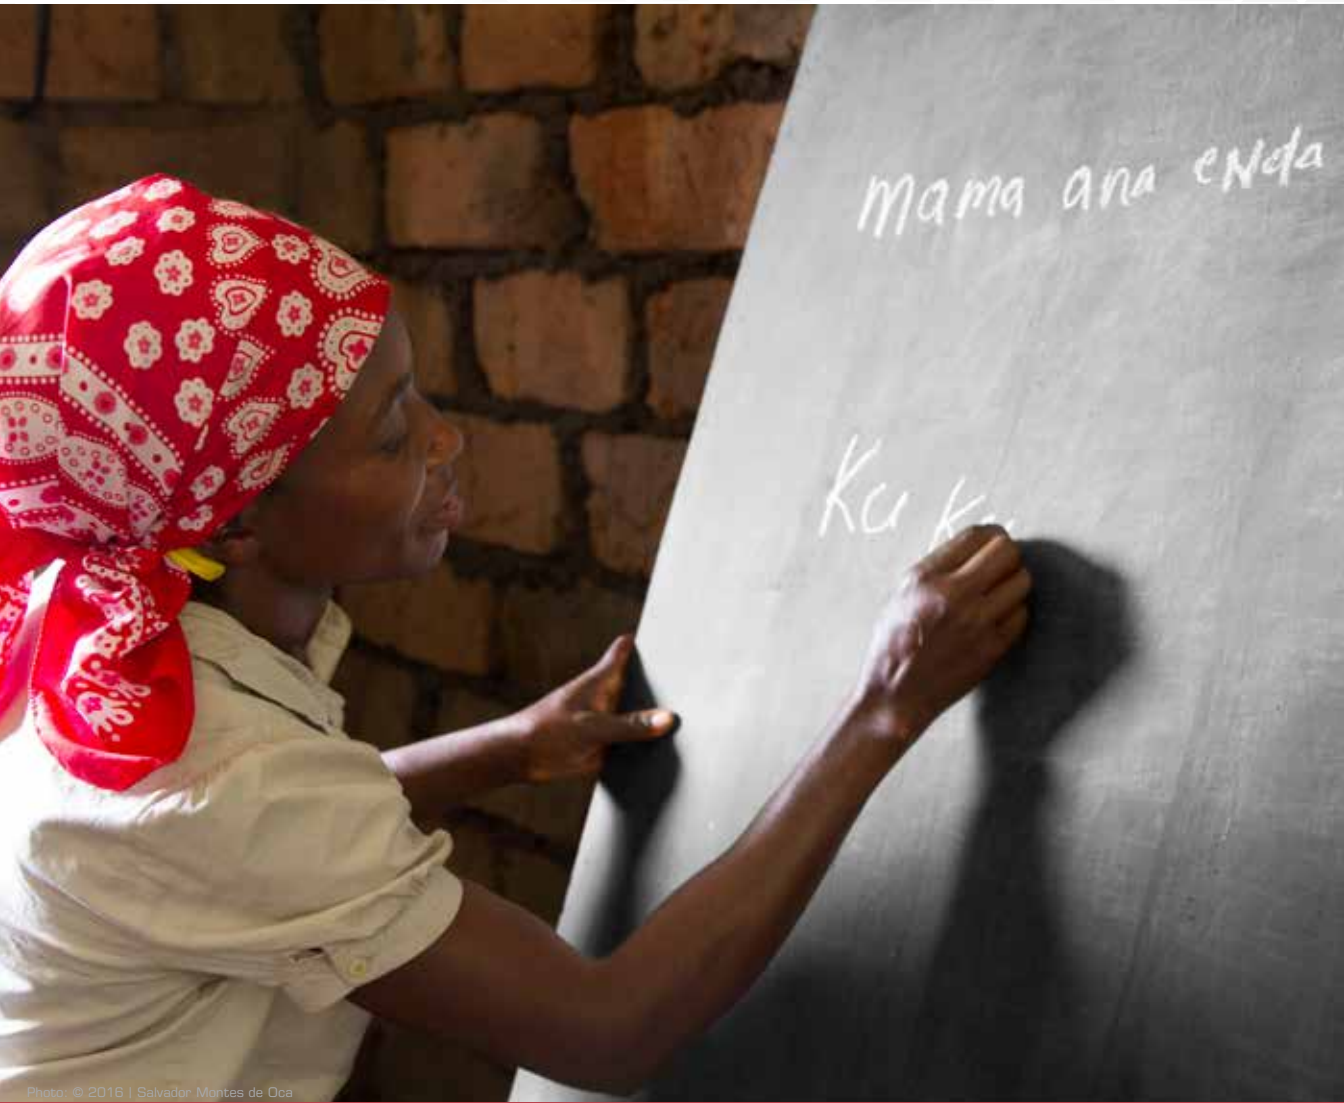 mama ana eNda
Ku Ku
Photo: © 2016 | Salvador Montes de Oca